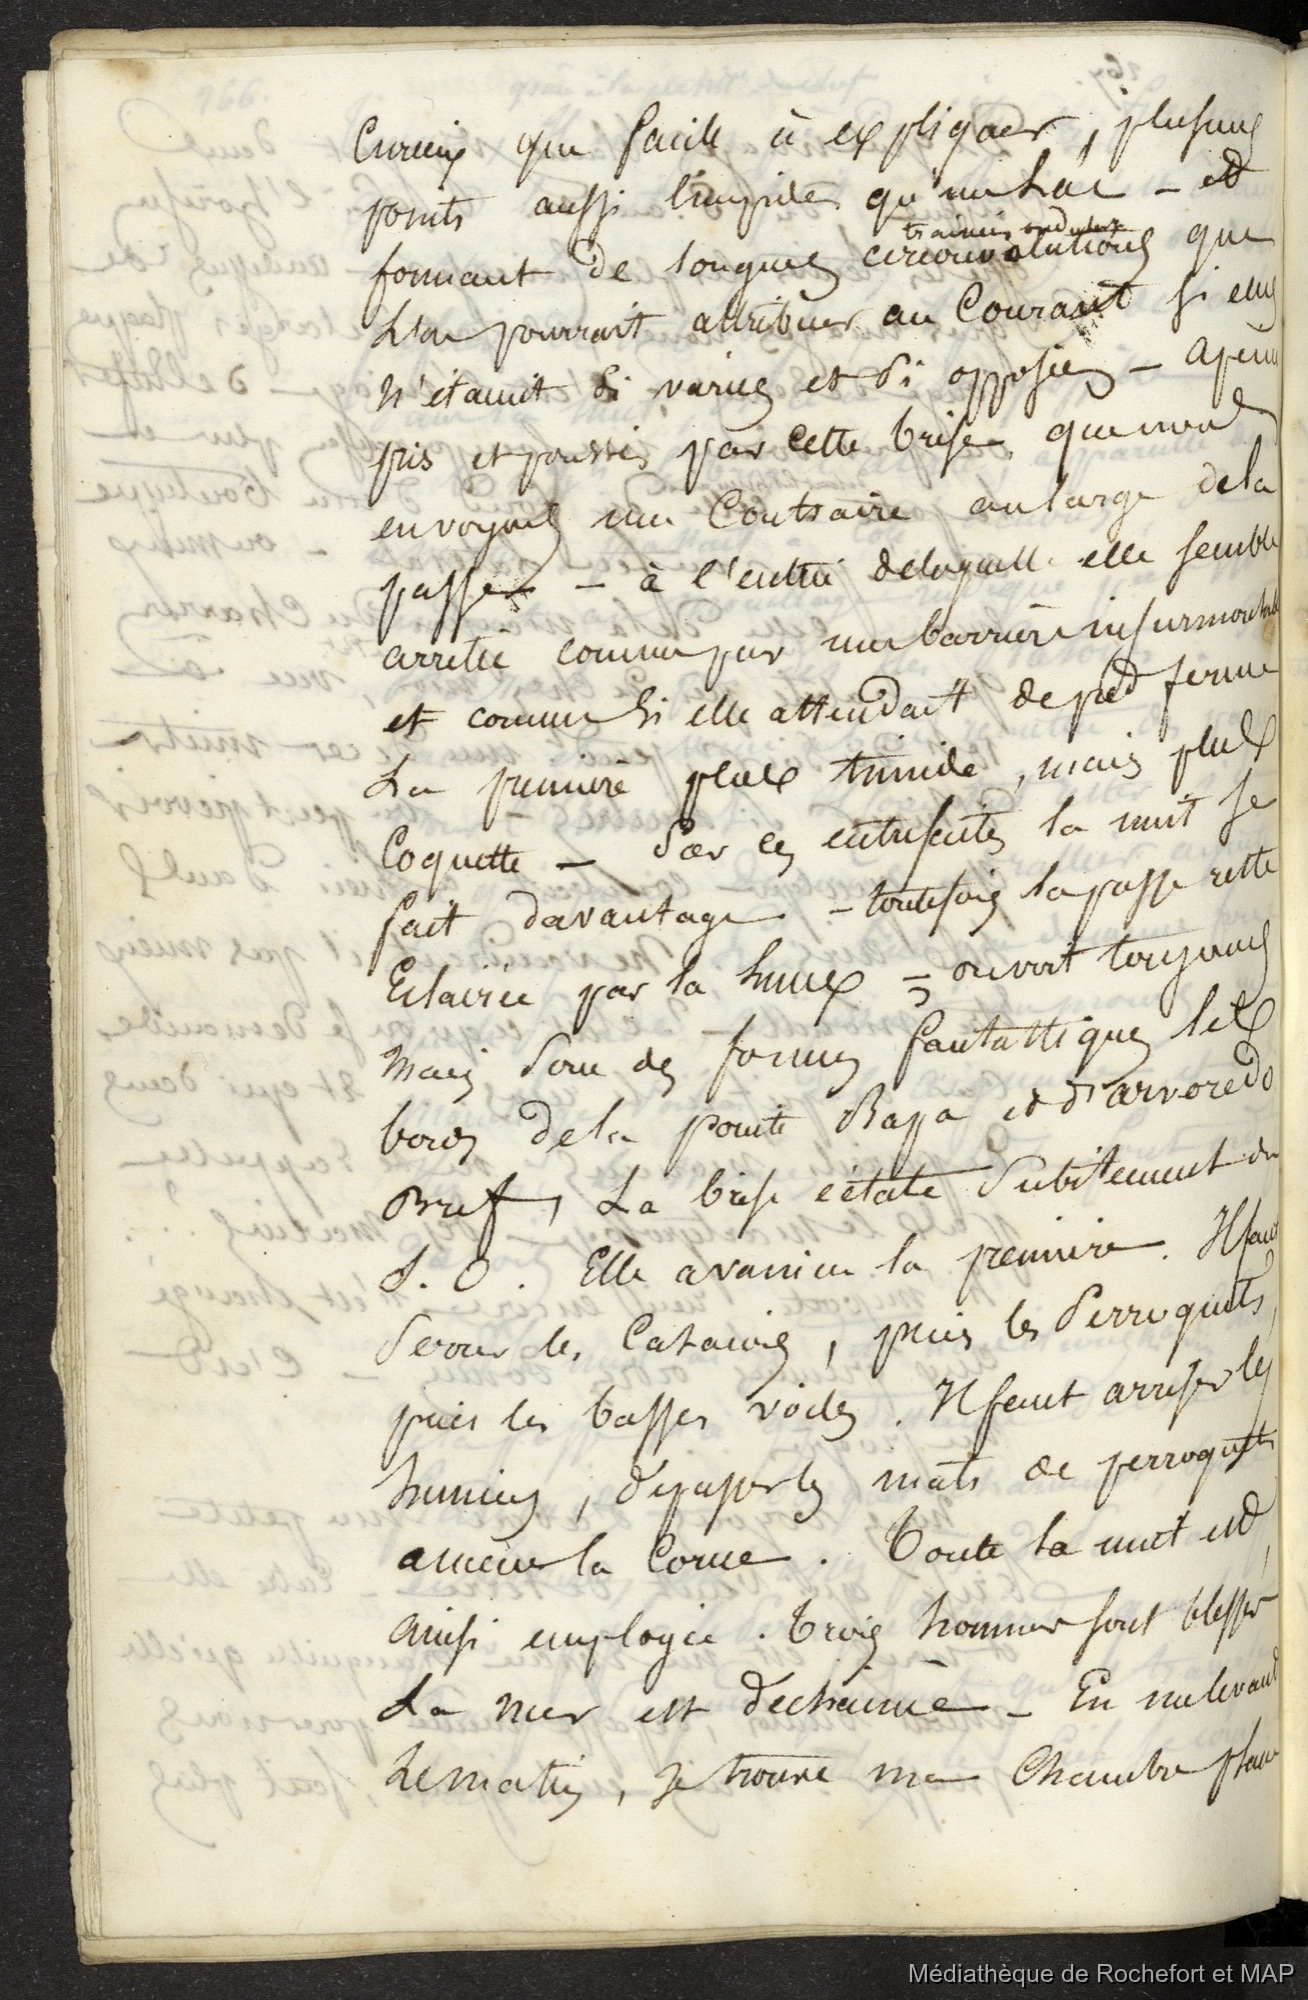 Curieux que facile à expliquer, plusieurs
points aussi limpides qu'un lac - et
trainées ondulées
formant de longues circonvolutions que
L'on pourrait attribuer au Courant si elles
n'étaient si variées et si opposées - Apeine
pris et poussés par cette brise, que nous
envoyons une Contraire au large de la
passe - à l'entrée de laquelle elle semble
arrêtée comme par une barrière insurmontable
et comme si elle attendait de pied ferme
La première plus timide, mais plus
Coquette - Sur ces entrefaites la nuit se
fait davantage - toutefois la passe reste
Eclairée par la lune - on voit toujours
Mais sous des formes fantastiques les
bords de la pointe Rapa et d'arvoredo
Bref, La brise éclate Subitement du
S. O. Elle a vaincu la première. Il faut
Serrer les Catacois, puis les Perroquets,
puis les basses voiles. Il faut arriser les
huniers, dépasser les mâts de perroquets
amener la Corne. Toute la nuit est
Ainsi employée. Trois hommes sont blessés
La mer est déchainée - En me levant
Le matin, je trouve ma Chambre pleine
Médiathèque de Rochefort et MAP